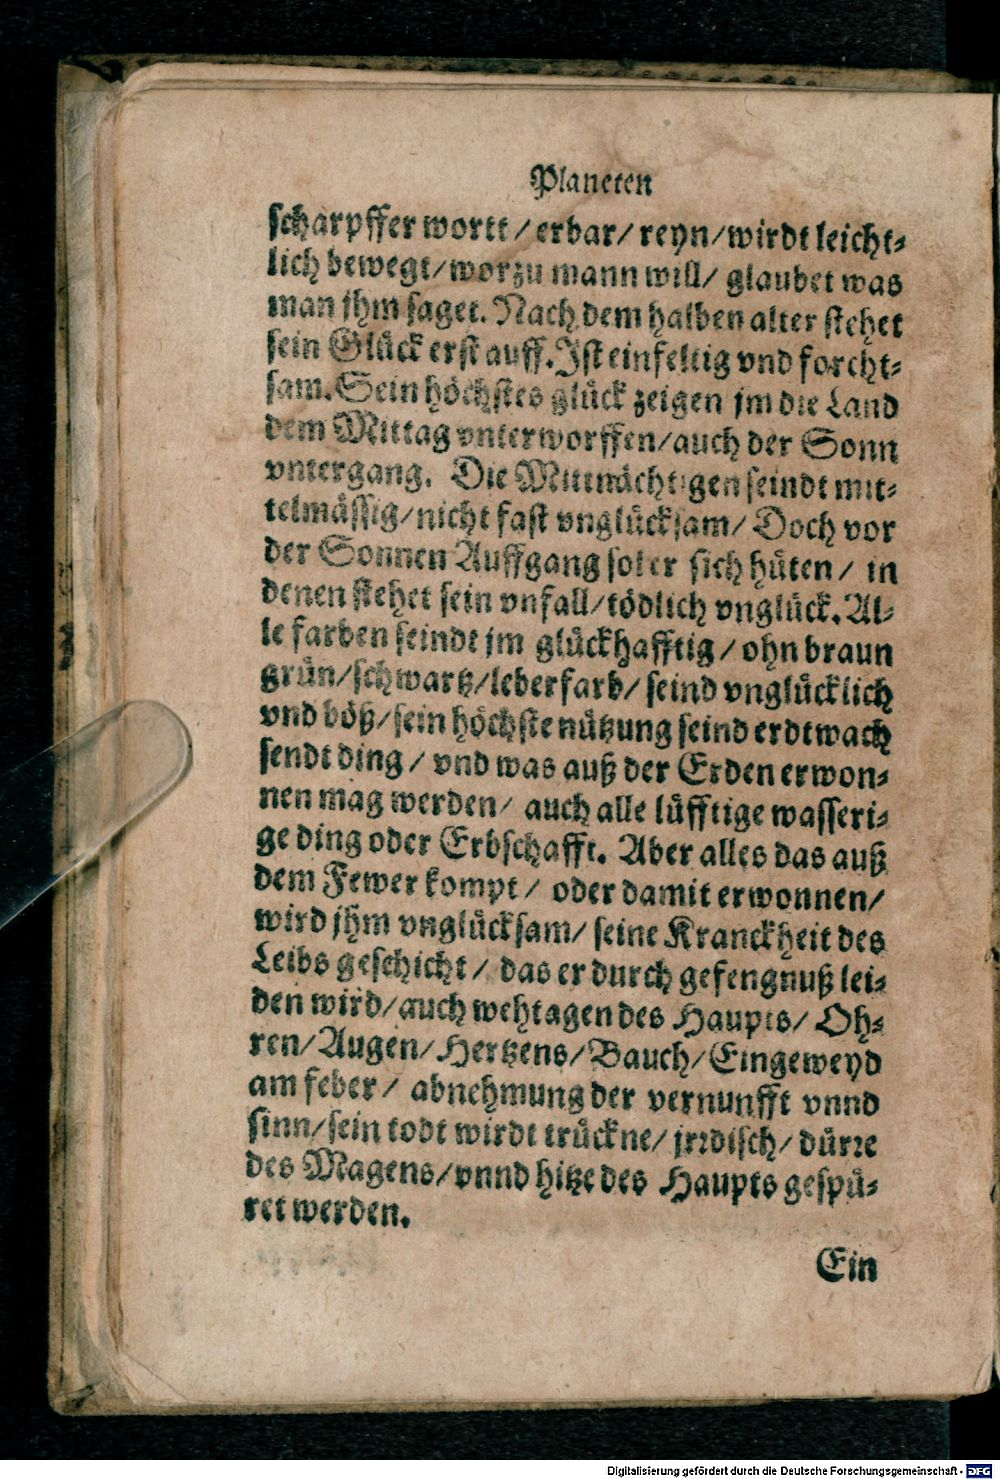 Planeten
scharpffer wortt / erbar / reyn / wirdt leicht⸗
lich bewegt / worzu mann will / glaubet was
man jhm saget. Nach dem halben alter stehet
sein Glück erst auff. Ist einfeltig vnd forcht⸗
sam. Sein höchstes glück zeigen jm die Land
dem Mittag vnterworffen / auch der Sonn
vntergang. Die Mittnächtigen seindt mit⸗
telmässig / nicht fast vnglücksam / Doch vor
der Sonnen Auffgang sol er sich hüten / in
denen stehet sein vnfall / tödlich vnglück. Al⸗
le farben seindt jm glückhafftig / ohn braun
grün / schwartz / leberfarb / seind vnglücklich
vnd böß / sein höchste nützung seind erdtwach
sendt ding / vnd was auß der Erden erwon⸗
nen mag werden / auch alle lüfftige wasseri⸗
ge ding oder Erbschafft. Aber alles das auß
dem Fewer kompt / oder damit erwonnen /
wird jhm vnglücksam / seine Kranckheit des
Leibs geschicht / das er durch gefengnuß lei⸗
den wird / auch wehtagen des Haupts / Oh⸗
ren / Augen / Hertzens / Bauch / Eingeweyd
am feber / abnehmung der vernunfft vnnd
sinn / sein todt wirdt trückne / jrrdisch / dürre
des Magens / vnnd hitze des Haupts gespü⸗
ret werden.
Ein
Digitalisierung gefördert durch die Deutsche Forschungsgemeinschaft - DFG